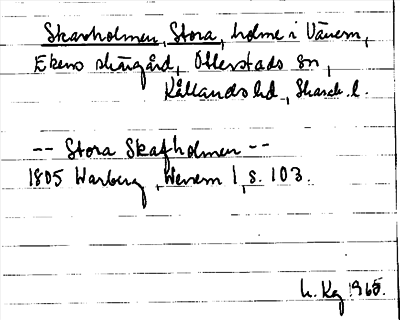 Skarholmen, Stora, holme i Vänern,
Ekens skärgård, Otterstads sn,
Kållands hd, Skarab. l.
-- Stora Skafholmen --
1805 Warberg, Wenern 1, s. 103.
1965.